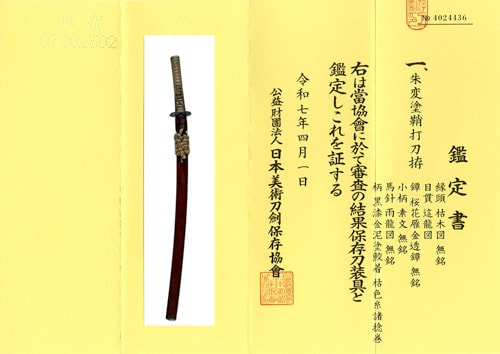 № 4024436
鑑定書
一、朱変塗鞘打刀拵
縁頭 枯木図 無銘
目貫 這龍図
鐔 桜花雁金透鐔 無銘
小柄 素文 無銘
馬針 雨龍図 無銘
柄 黒漆金泥塗鮫着 枯色糸諸捻巻
右は當協會に於て審査の結果保存刀装具と
鑑定しこれを証する
令和七年四月一日
公益財團法人 日本美術刀劍保存協會